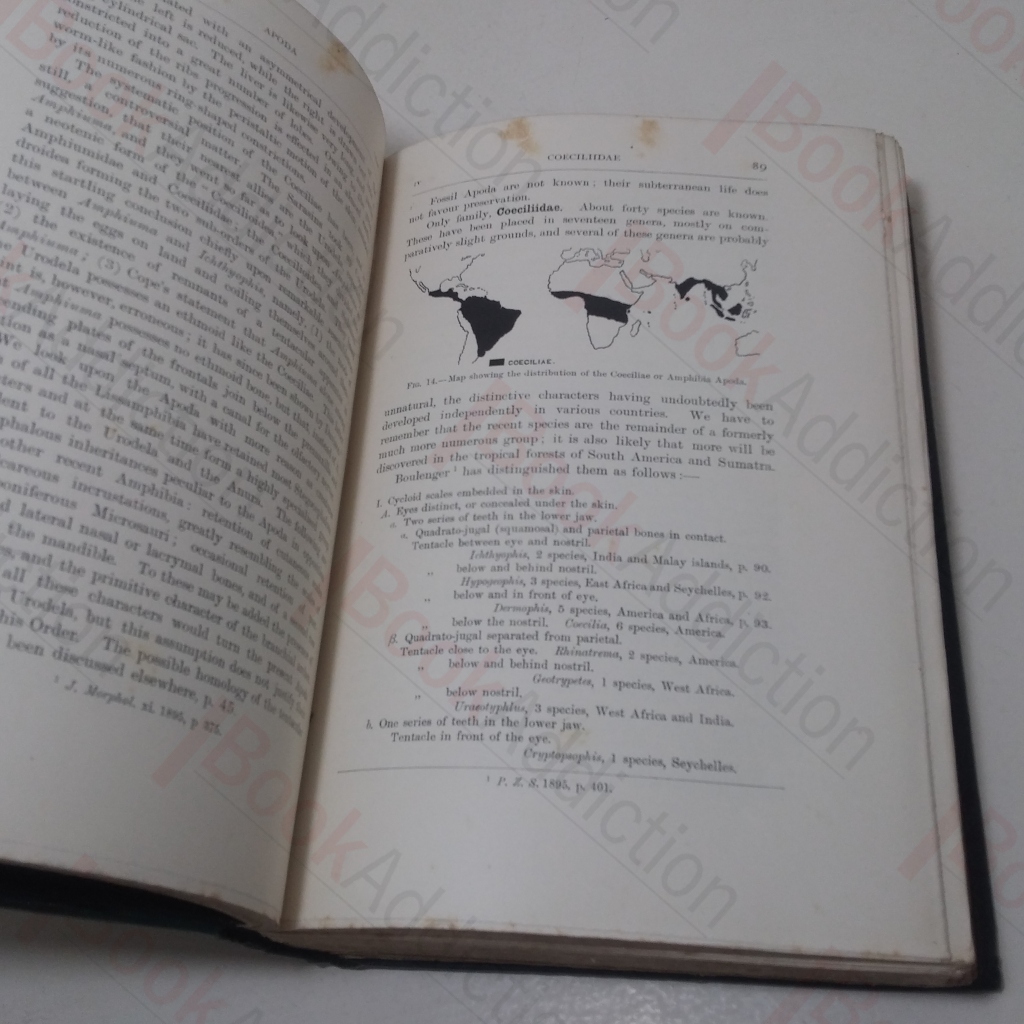 APODA
cylindrical sac. The liver is likewise very long and
constricted into a great number of lobes. Owing to the
reduction of the ribs progression is effected in
worm-like fashion by the peristaltic motion of the skin,
by its numerous ring-shaped constrictions.
The systematic position of the Coecilians has been, and is
still, a controversial matter. The Sarasins took up Cope's
suggestion, that their nearest allies are the Urodela, especially
Amphiuma, and they went so far as to look upon Amphiuma as
a neotenic form of the Coeciliidae, the
Amphiumidae and Coeciliidae
droidea forming the two sub-orders of the Urodela. They based
this startling conclusion chiefly upon remarkable
between Amphiuma and Ichthyophis, namely, (1) the
laying the eggs on land and coiling themselves
(2) the existence of remnants of a tentacular apparatus
Amphiuma; (3) Cope's statement that Amphiuma
the Urodela possesses an ethmoid like the Coecilians.
point is, however, erroneous; it has since been shown by
that Amphiuma possesses no ethmoid bone, but that
descending plates of the frontals join below the
tion as a nasal septum, with a canal for the olfactory
We look upon the Apoda with more reason as
of all the Lissamphibia have retained most Stegocephalous
characters and at the same time form a highly specialised
to the Urodela and the Anura. The following
cephalous inheritances peculiar to the Apoda in opposition
other recent Amphibia: retention of cutaneous
careous incrustations, greatly resembling the
boniferous Microsauri; occasional retention of
and lateral nasal or lacrymal bones, and of a second
the mandible. To these may be added the
and the primitive character of the branchial
all these characters would turn the present
Urodela, but this assumption does not justify
this Order. The possible homology of the tentacular
been discussed elsewhere, p. 45
¹ J. Morphol. xi. 1895, p 375.
COECILIIDAE 89
IV
Fossil Apoda are not known; their subterranean life does
not favour preservation.
Only family, Coeciliidae. About forty species are known.
These have been placed in seventeen genera, mostly on com-
paratively slight grounds, and several of these genera are probably
COECILIAE.
FIG. 14.—Map showing the distribution of the Coeciliae or Amphibia Apoda.
unnatural, the distinctive characters having undoubtedly been
developed independently in various countries. We have to
remember that the recent species are the remainder of a formerly
much more numerous group; it is also likely that more will be
discovered in the tropical forests of South America and Sumatra.
Boulenger ¹ has distinguished them as follows:—
I. Cycloid scales embedded in the skin.
A. Eyes distinct, or concealed under the skin.
a. Two series of teeth in the lower jaw.
α. Quadrato-jugal (squamosal) and parietal bones in contact.
Tentacle between eye and nostril.
Ichthyophis, 2 species, India and Malay islands, p. 90.
„ below and behind nostril.
Hypogeophis, 3 species, East Africa and Seychelles, p. 92.
„ below and in front of eye.
Dermophis, 5 species, America and Africa, p. 93.
„ below the nostril. Coecilia, 6 species, America.
β. Quadrato-jugal separated from parietal.
Tentacle close to the eye. Rhinatrema, 2 species, America.
„ below and behind nostril.
Geotrypetes, 1 species, West Africa.
„ below nostril.
Uraeotyphlus, 3 species, West Africa and India.
b. One series of teeth in the lower jaw.
Tentacle in front of the eye.
Cryptopsophis, 1 species, Seychelles.
¹ P. Z. S. 1895, p. 401.
BookAddiction